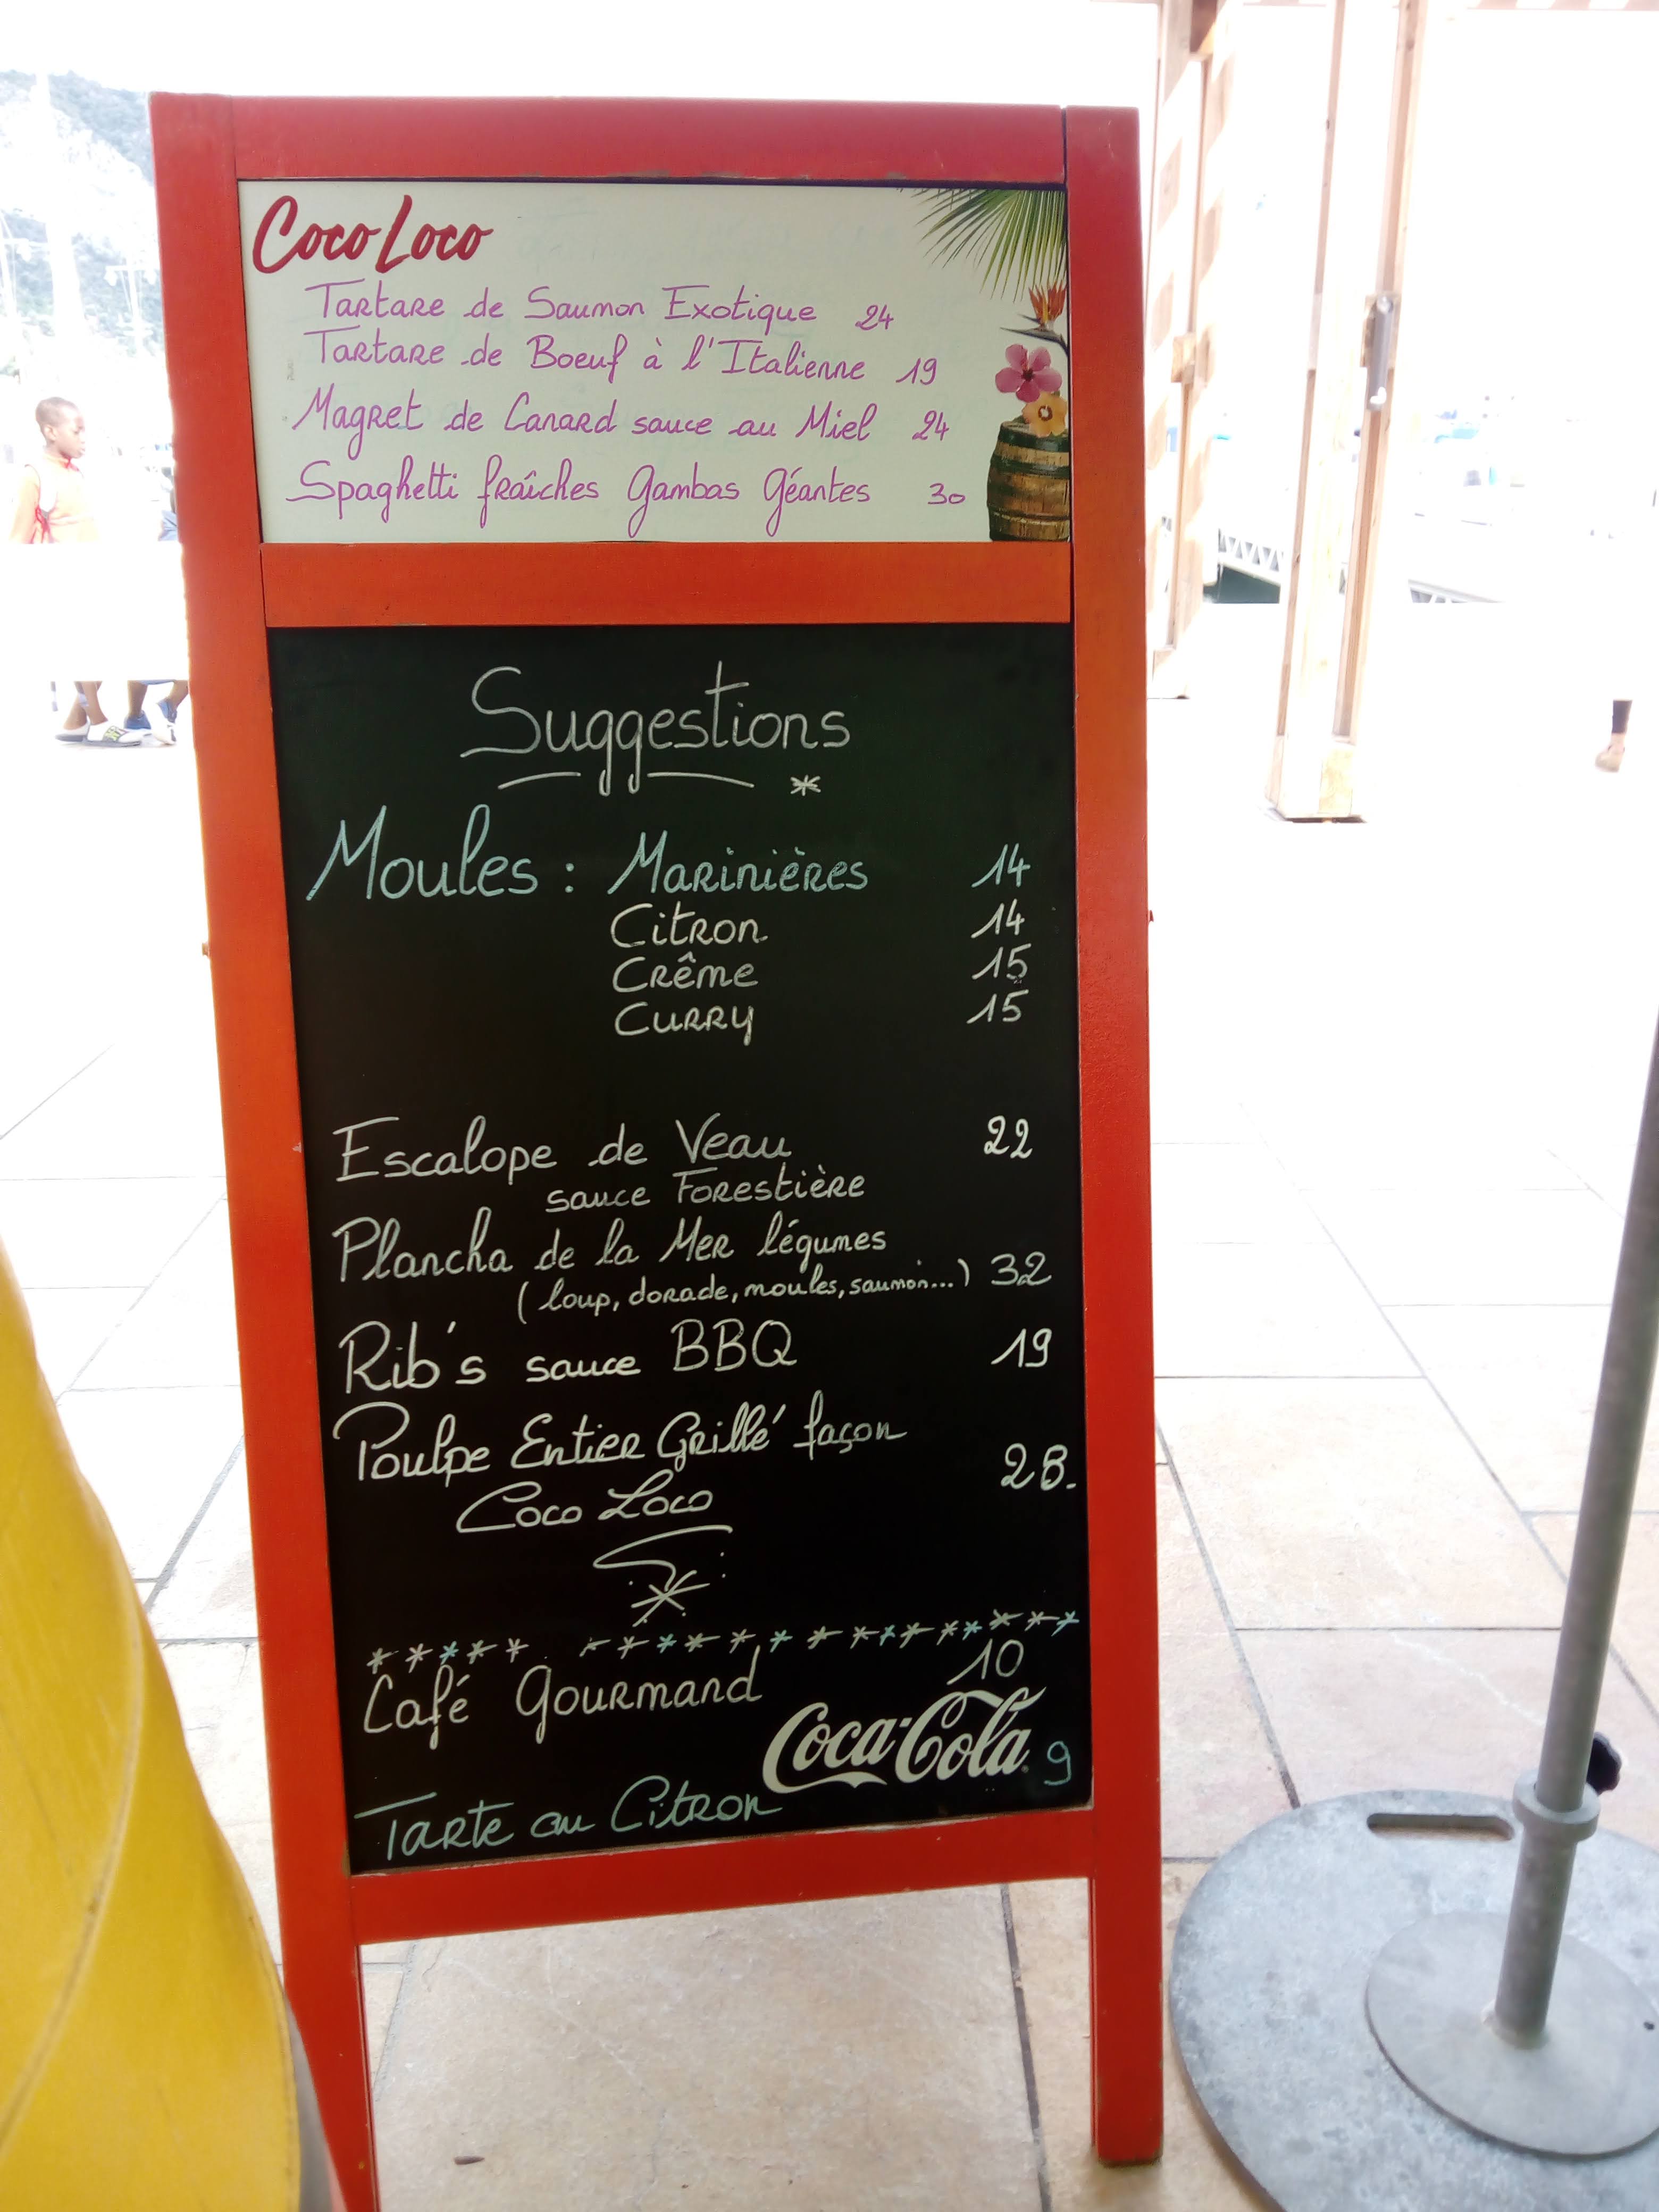 Coco Loco
Tartare de Saumon Exotique 24
Tartare de Boeuf à l'Italienne 19
Magret de Canard sauce au Miel 24
Spaghetti fraîches Gambas Géantes 30
Suggestions
Moules : Marinières 14
Citron 14
Crême 15
Curry 15
Escalope de Veau 22
sauce Forestière
Plancha de la Mer légumes
(loup, dorade, moules, saumon...) 32
Rib's sauce BBQ 19
Poulpe Entier Grillé façon
Coco Loco 28.
Café Gourmand 10
Coca-Cola
Tarte au Citron 9